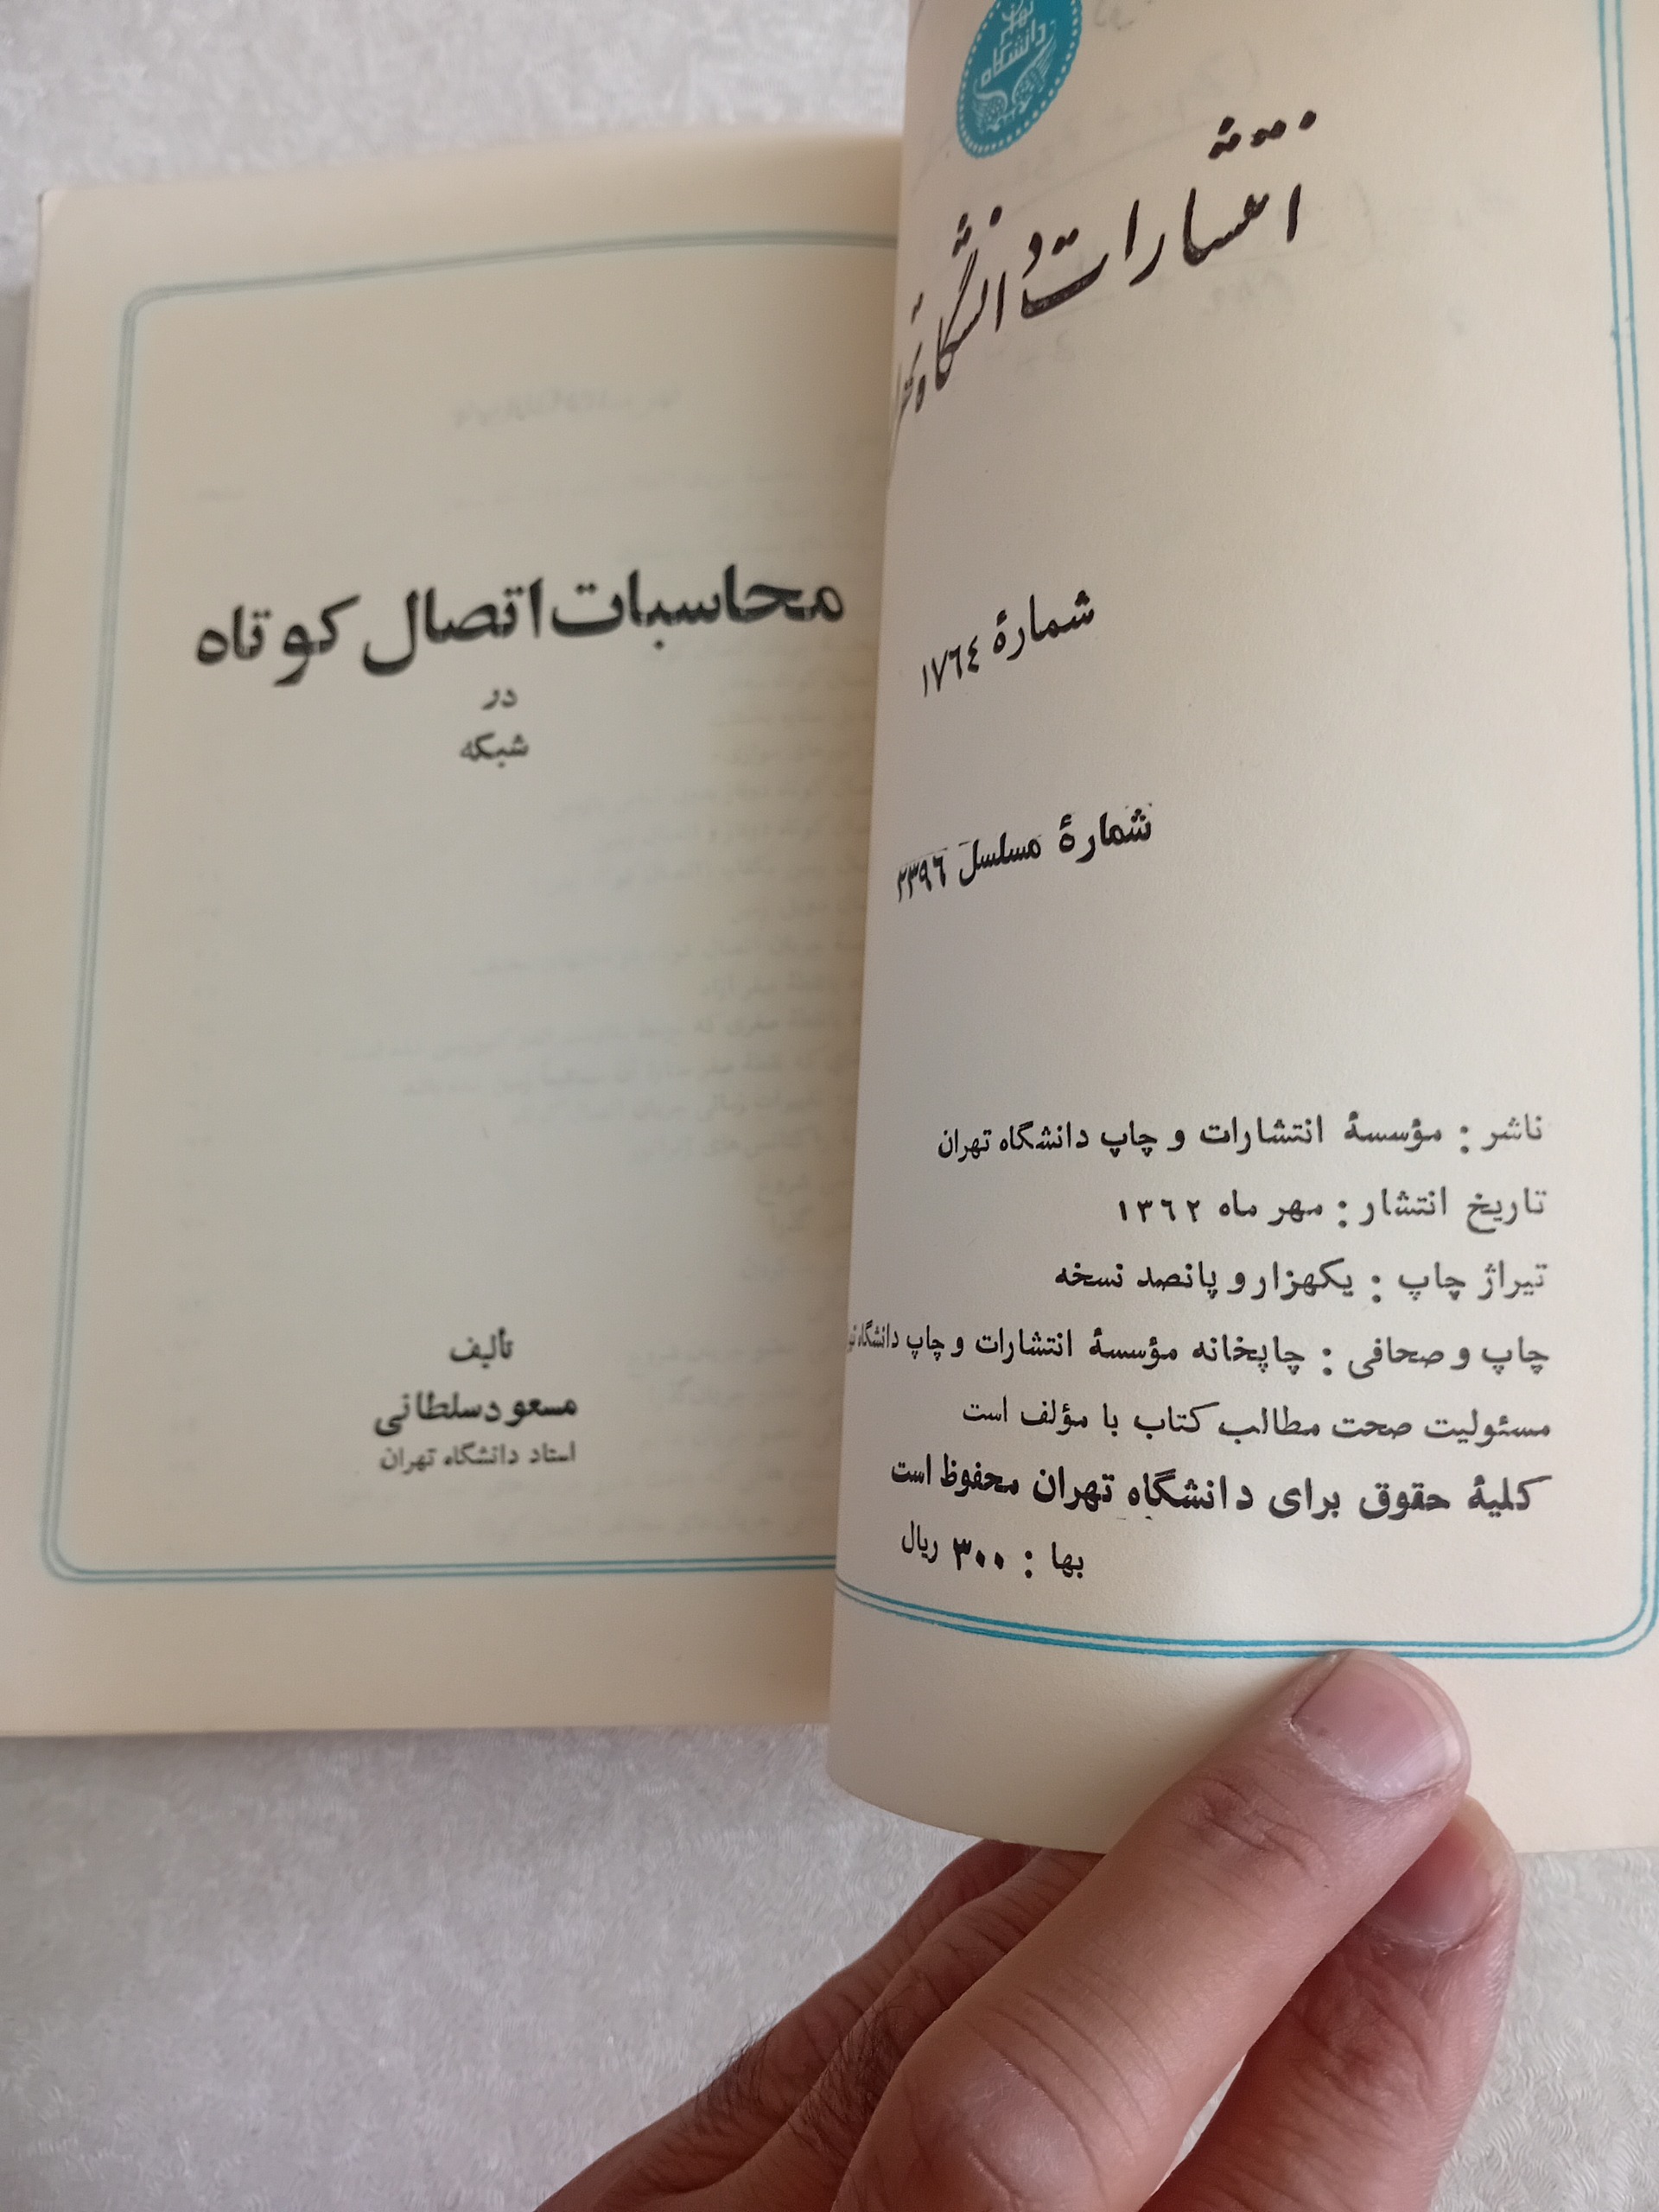 دانشگاه
انتشارات دانشگاه
شمارهٔ ١٧٦٤
شمارهٔ مسلسل ٢٣٩٦
ناشر : مؤسسهٔ انتشارات و چاپ دانشگاه تهران
تاریخ انتشار : مهر ماه ١٣٦٢
تیراژ چاپ : یکهزار و پانصد نسخه
چاپ و صحافی : چاپخانه مؤسسهٔ انتشارات و چاپ دانشگاه
مسئولیت صحت مطالب کتاب با مؤلف است
کلیهٔ حقوق برای دانشگاه تهران محفوظ است
بها : ٣٠٠ ریال
محاسبات اتصال کوتاه
در
شبکه
تألیف
مسعود سلطانی
استاد دانشگاه تهران